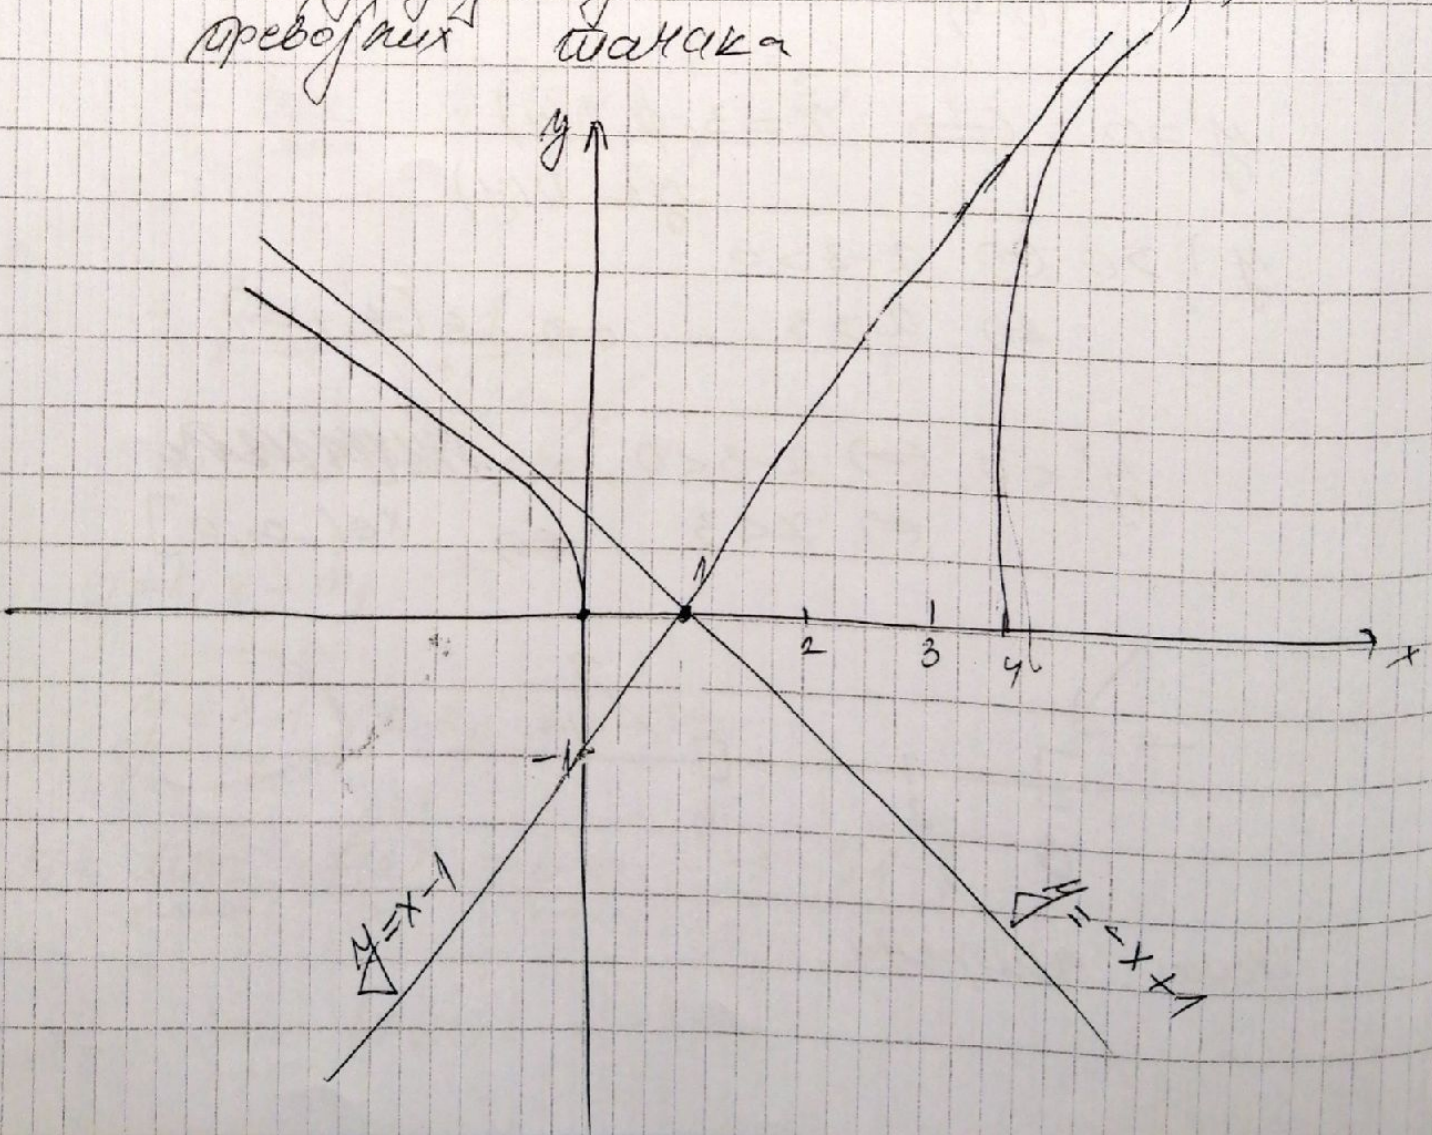 превојних тачака
y
1
2 3 4 x
-1
y=x-1
y=-x+1